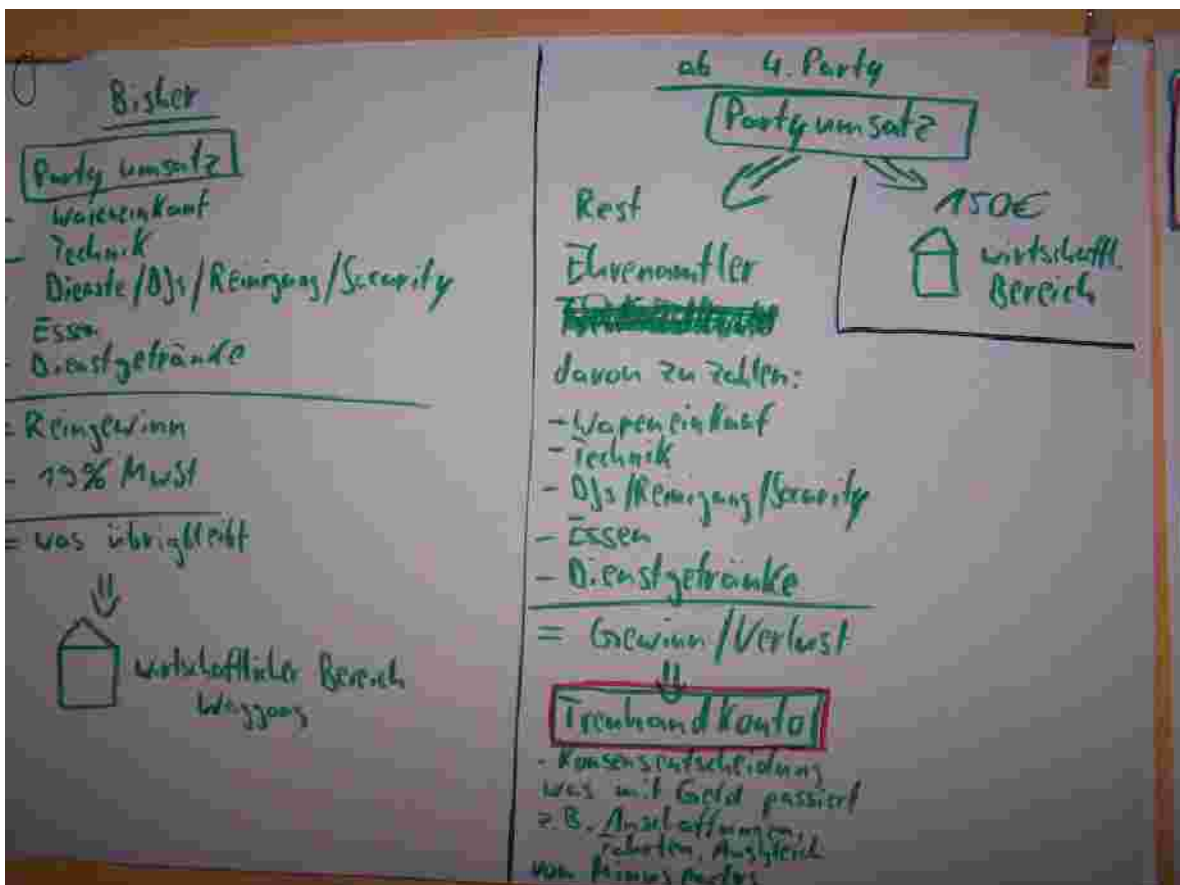 Bisher
Party umsatz
- Wareneinkauf
- Technik
- Dienste/DJs/Reinigung/Security
Essen
- Dienstgetränke
= Reingewinn
- 19% MwSt
= was übrigbleibt
wirtschaftlicher Bereich
Waggons
ab 4. Party
Party umsatz
Rest
Ehrenamtler
davon zu zahlen:
- Wareneinkauf
- Technik
- DJs/Reinigung/Security
- Essen
- Dienstgetränke
= Gewinn/Verlust
Treuhandkonto
- Konsensentscheidung
was mit Geld passiert
z.B. Anschaffungen,
Fahrten, Ausgleich
von Minus
150€
wirtschaftl.
Bereich